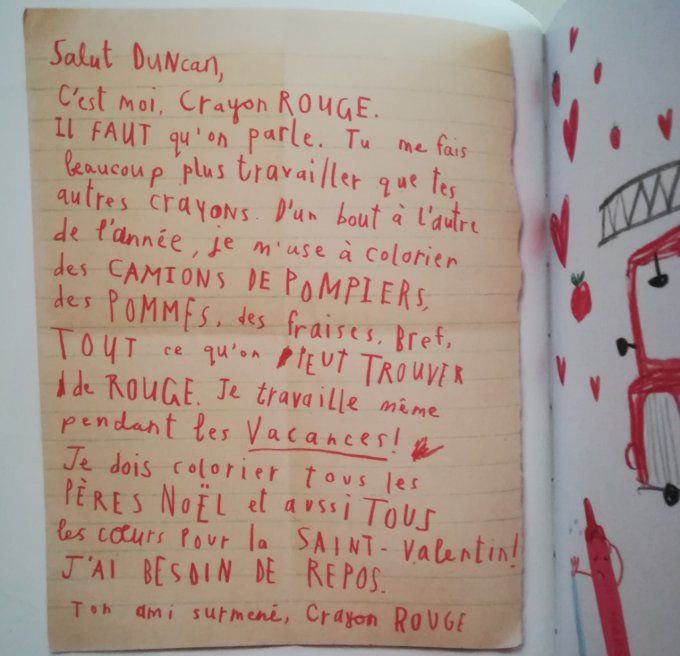 Salut DUNcan,
C'est moi, Crayon ROUGE.
Il FAUT qu'on parle. Tu me fais
beaucoup plus travailler que tes
autres crayons. D'un bout à l'autre
de l'année, je m'use à colorier
des CAMIONS DE POMPIERS,
des POMMES, des fraises. Bref,
TOUT ce qu'on PEUT TROUVER
de ROUGE. Je travaille même
pendant les Vacances!
Je dois colorier tous les
PÈRES NOËL et aussi TOUS
les cœurs pour la SAINT-Valentin!
J'AI BESOIN DE REPOS.
Ton ami surmené, Crayon ROUGE